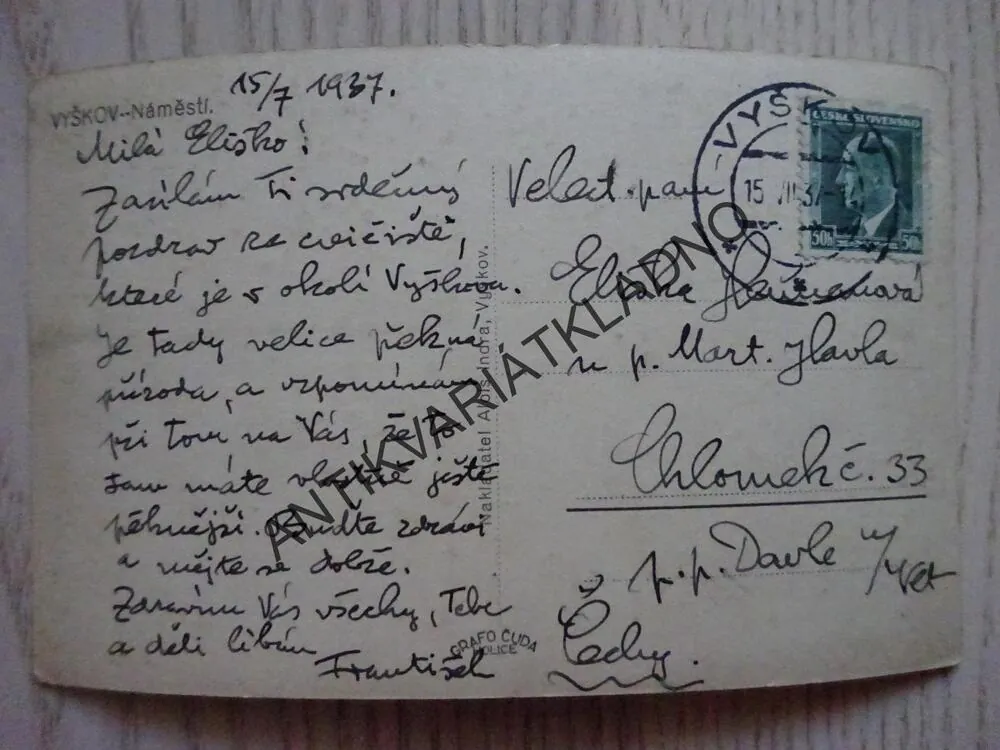 VYŠKOV--Náměstí.
15/7 1937.
Milá Eliško!
Zasílám Ti srdečný
pozdrav ze cvičiště,
které je v okolí Vyškova.
Je tady velice pěkná
příroda, a vzpomínám
při tom na Vás, že to
tam máte vlastně ještě
pěknější. Buďte zdrávi
a mějte se dobře.
Zdravím Vás všechny, Tebe
a děti líbám
František
Nakladatel Alois Indra, Vyškov.
GRAFO ČUDA
HOLICE
VYŠKOV
15 VII 37
ČESKOSLOVENSKO
50h 50h
Velect. paní
Eliška
u p. Mart. Havla
Chlomek č. 33
p. p. Davle n/Vlt
Čechy.
ANTIKVARIÁTKLADNO